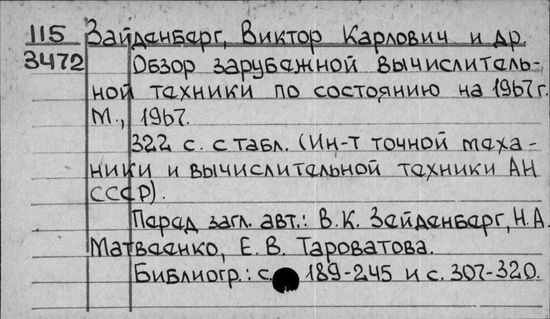 115 Зайденберг, Виктор Карлович и др.
3472 Обзор зарубежной вычислитель-
ной техники по состоянию на 1967 г.
М., 1967.
322 с. с табл. (Ин-т точной меха-
ники и вычислительной техники АН
СССР).
Перед загл. авт.: В.К. Зейденберг, Н.А.
Матвеенко, Е.В. Тароватова.
Библиогр.: с. 189-245 и с. 307-320.